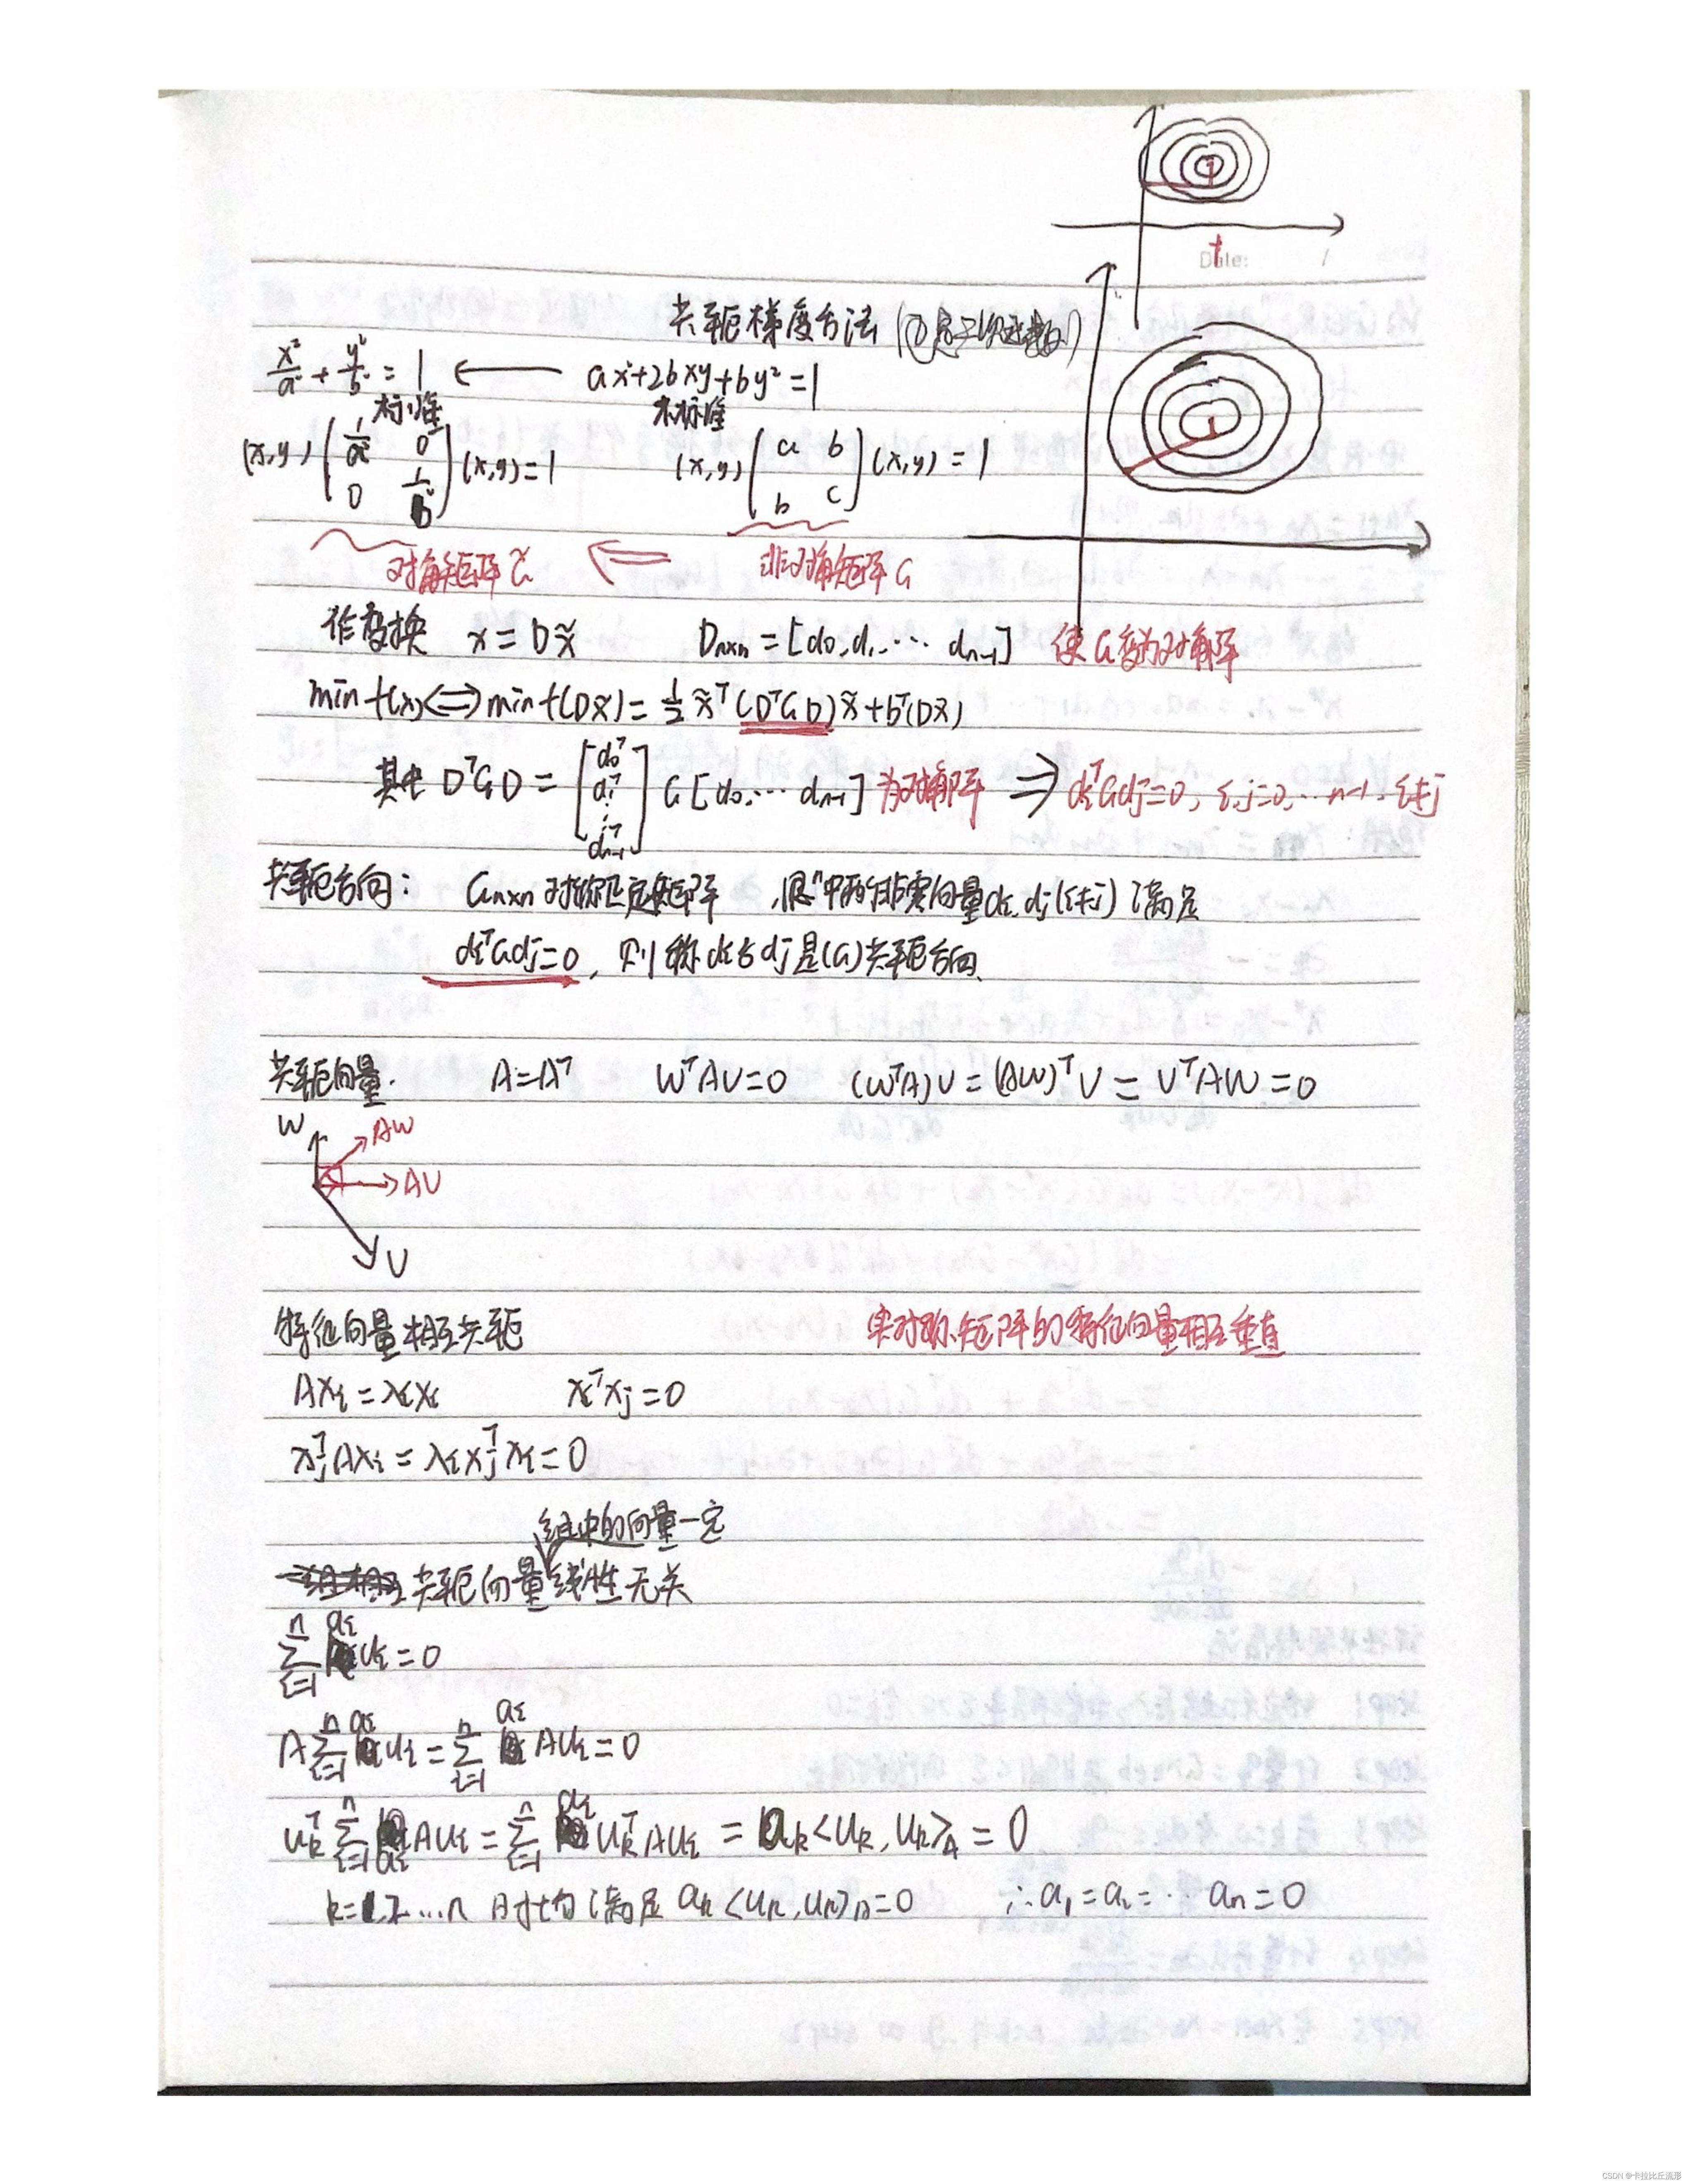 Date: /
共轭梯度方法(正定二次函数)
x²/a² + y²/b² = 1 ← ax²+2bxy+by²=1
标准 未标准
(x,y) [1/a² 0; 0 1/b²] (x,y)=1 (x,y) [a b; b c] (x,y)=1
对角矩阵G̃ ⇐ 非对角矩阵G
作变换 x=Dx̃ Dn×n=[d0,d1,⋯ dn-1] 使G变为对角阵
minf(x)⇔minf(Dx̃)=½x̃ᵀ(DᵀGD)x̃+bᵀ(Dx̃)
其中 DᵀGD = [d0ᵀ; d1ᵀ; ⋮; dn-1ᵀ] G[d0,⋯ dn-1] 为对角阵 ⇒ diᵀGdj=0, i,j=0,⋯n-1. i≠j
共轭方向: Gn×n对称正定矩阵, 恨ⁿ中两非零向量di,dj(i≠j)满足
diᵀGdj=0, 则称di与dj是(G)共轭方向.
共轭向量. A=Aᵀ WᵀAV=0 (WᵀA)V=(AW)ᵀV=VᵀAW=0
W AW
AV
V
特征向量相互共轭 实对称矩阵的特征向量相互垂直
Axi=λixi xiᵀxj=0
xjᵀAxi=λixjᵀxi=0
组中的向量一定
共轭向量线性无关
Σ(i=1,n) ai ui=0
AΣ(i=1,n) ai ui=Σ(i=1,n) ai Aui=0
ukᵀΣ(i=1,n) ai Aui=Σ(i=1,n) ai ukᵀAui = ak<uk,uk>A=0
k=1,2…n 时均满足 ak<uk,uk>A=0 ∴a1=a2=⋯an=0
CSDN @卡拉比丘流形